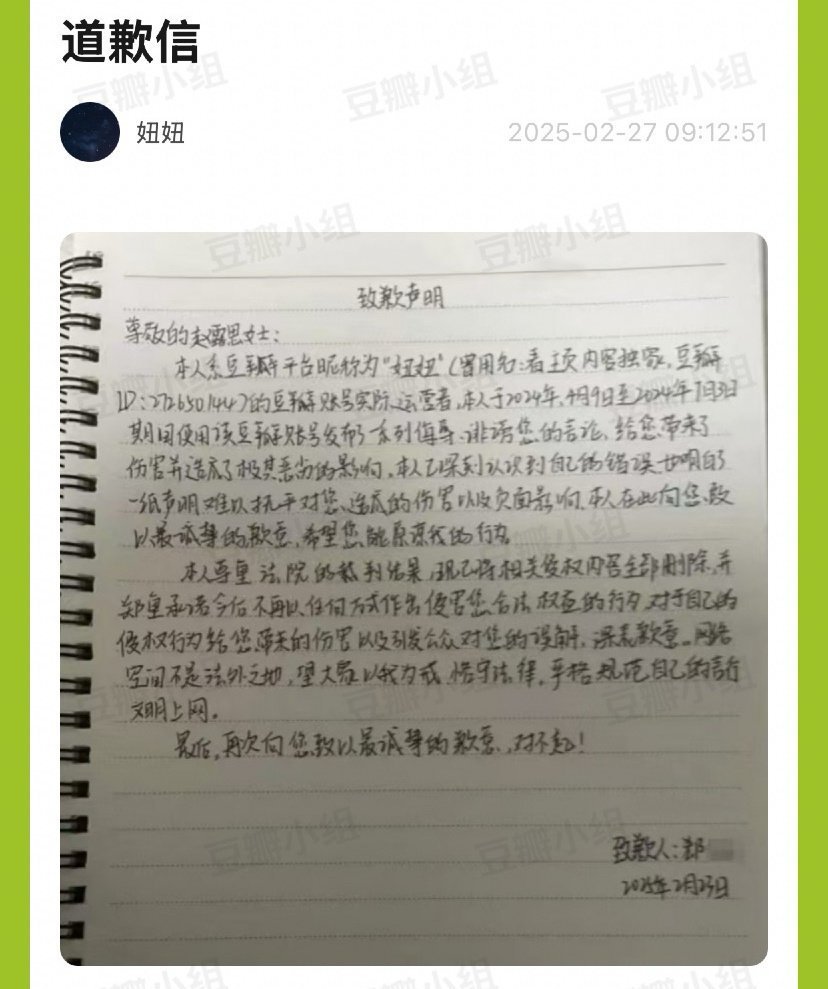 道歉信
妞妞
2025-02-27 09:12:51
致歉声明
尊敬的赵露思女士:
本人系豆瓣平台昵称为"妞妞"(曾用名:看主页内容独家,豆瓣
ID:272650144)的豆瓣账号实际运营者,本人于2024年4月9日至2024年7月3日
期间使用该豆瓣账号发布了一系列侮辱、诽谤您的言论,给您带来了
伤害并造成了极其恶劣的影响,本人已深刻认识到自己的错误,也明白了
一纸声明难以抚平对您造成的伤害以及负面影响,本人在此向您致
以最诚挚的歉意,希望您能原谅我的行为。
本人尊重法院的裁判结果,现已将相关侵权内容全部删除,并
郑重承诺今后不再以任何方式作出侵害您合法权益的行为,对于自己的
侵权行为给您带来的伤害以及引发公众对您的误解,深表歉意。网络
空间不是法外之地,望大家以我为戒,恪守法律,严格规范自己的言行
文明上网。
最后,再次向您致以最诚挚的歉意,对不起!
致歉人:郑
2025年2月23日
豆瓣小组